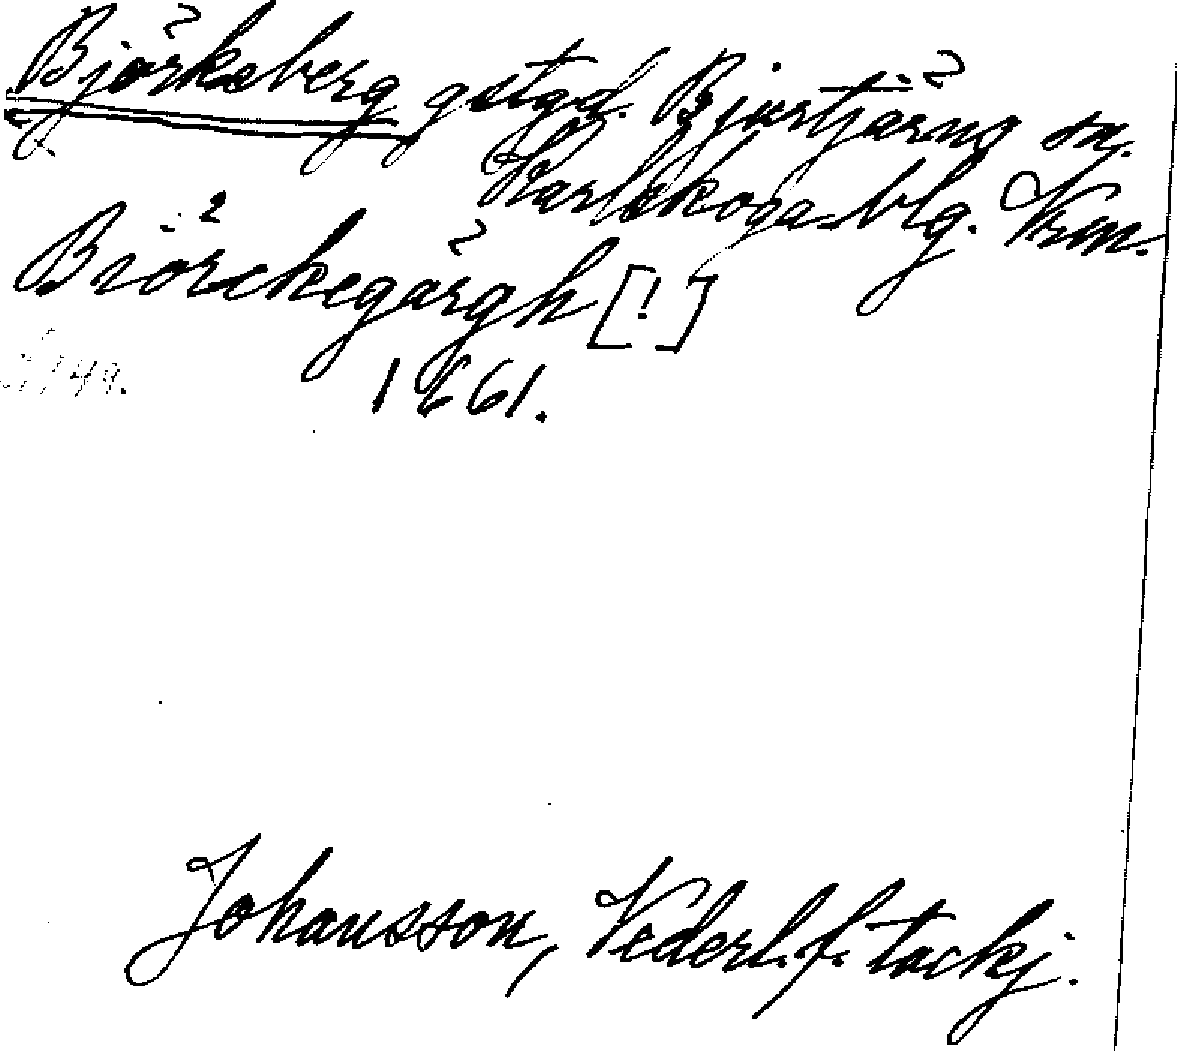 Björksberg gstgd. Bjurtjärns sn.
Karlskoga blg. Vrm.
Biörckegärgh [!]
1661.
Johansson, Vederl. f. tackj.